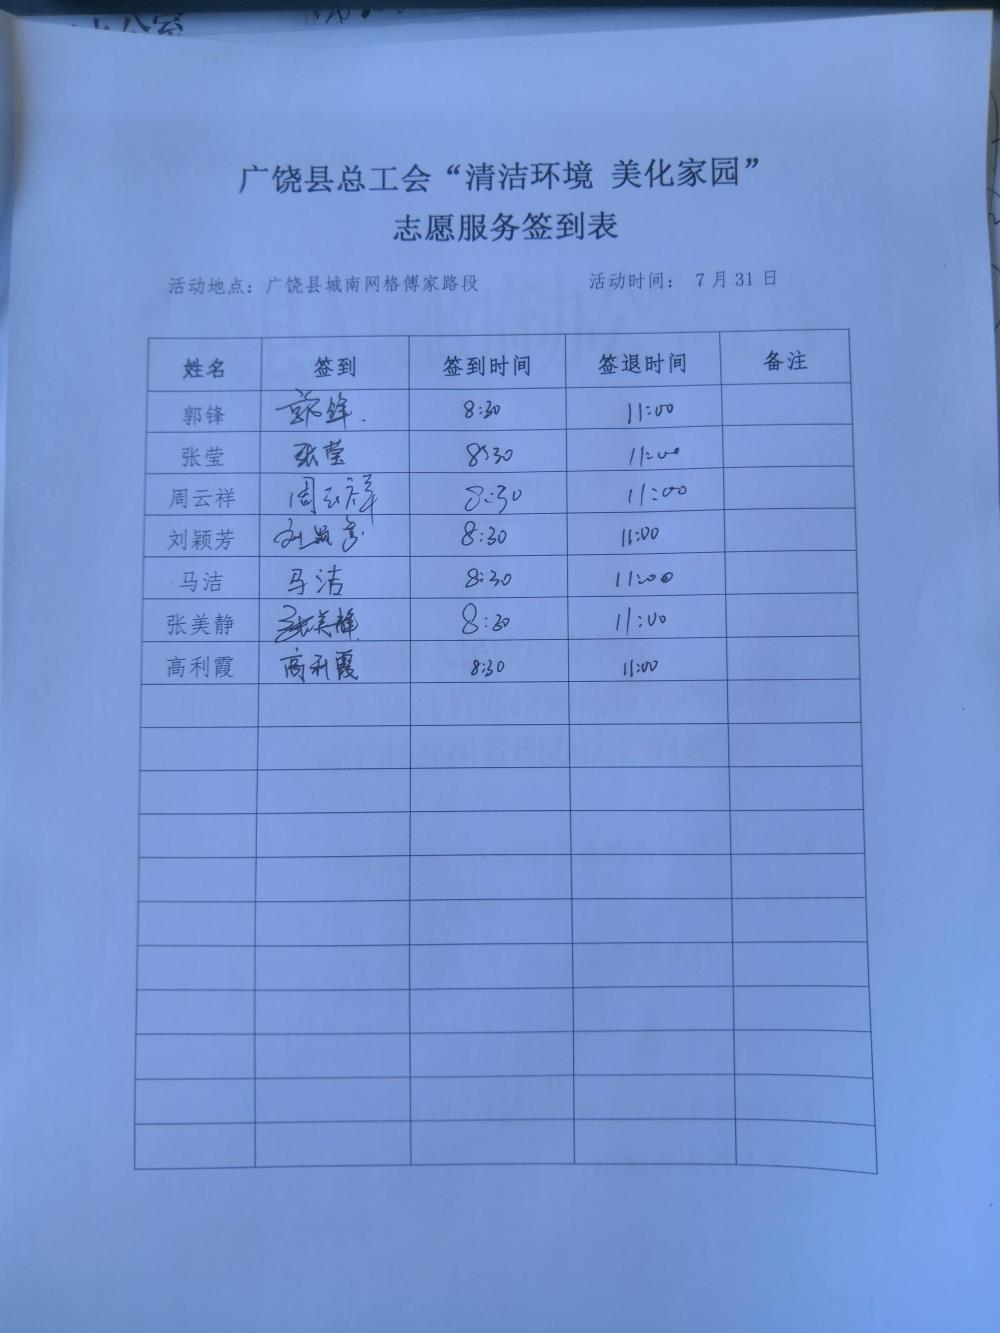 办公室
广饶县总工会“清洁环境 美化家园”
志愿服务签到表
活动地点：广饶县城南网格傅家路段 活动时间： 7月31日
姓名 签到 签到时间 签退时间 备注
郭锋 郭锋. 8:30 11:00
张莹 张莹 8:30 11:00
周云祥 周云祥 8:30 11:00
刘颖芳 刘颖芳 8:30 11:00
马洁 马洁 8:30 11:00
张美静 张美静 8:30 11:00
高利霞 高利霞 8:30 11:00